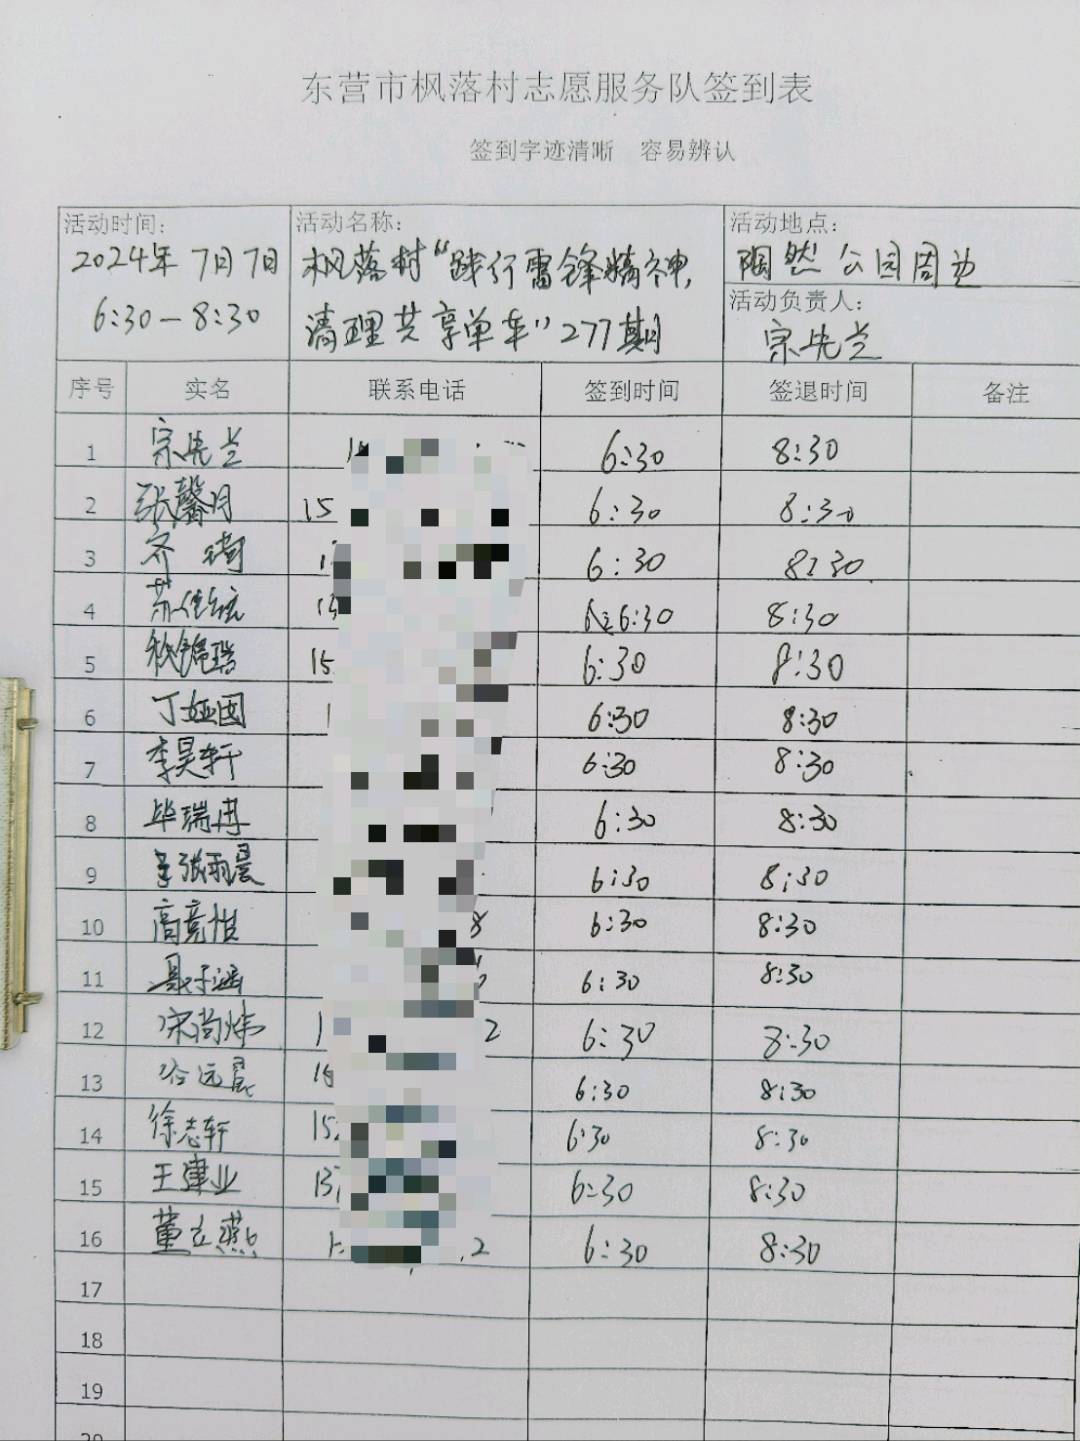 东营市枫落村志愿服务队签到表
签到字迹清晰 容易辨认
活动时间:
2024年7月7日
6:30—8:30
活动名称:
枫落村“践行雷锋精神,
清理共享单车”277期
活动地点:
陶然公园周边
活动负责人:
宗先兰
序号 实名 联系电话 签到时间 签退时间 备注
1 宗先兰 6:30 8:30
2 张馨月 15 6:30 8:30
3 齐 6:30 8:30
4 苏佳 13 6:30 8:30
5 锦瑞 15 6:30 8:30
6 丁娅囡 1 6:30 8:30
7 李昊轩 6:30 8:30
8 毕瑞冉 6:30 8:30
9 张雨晨 6:30 8:30
10 高竞恒 8 6:30 8:30
11 聂子涵 6:30 8:30
12 宋尚炜 1 2 6:30 8:30
13 远晨 6:30 8:30
14 徐志轩 15 6:30 8:30
15 王建业 13 6:30 8:30
16 董立燕 2 6:30 8:30
17
18
19
20